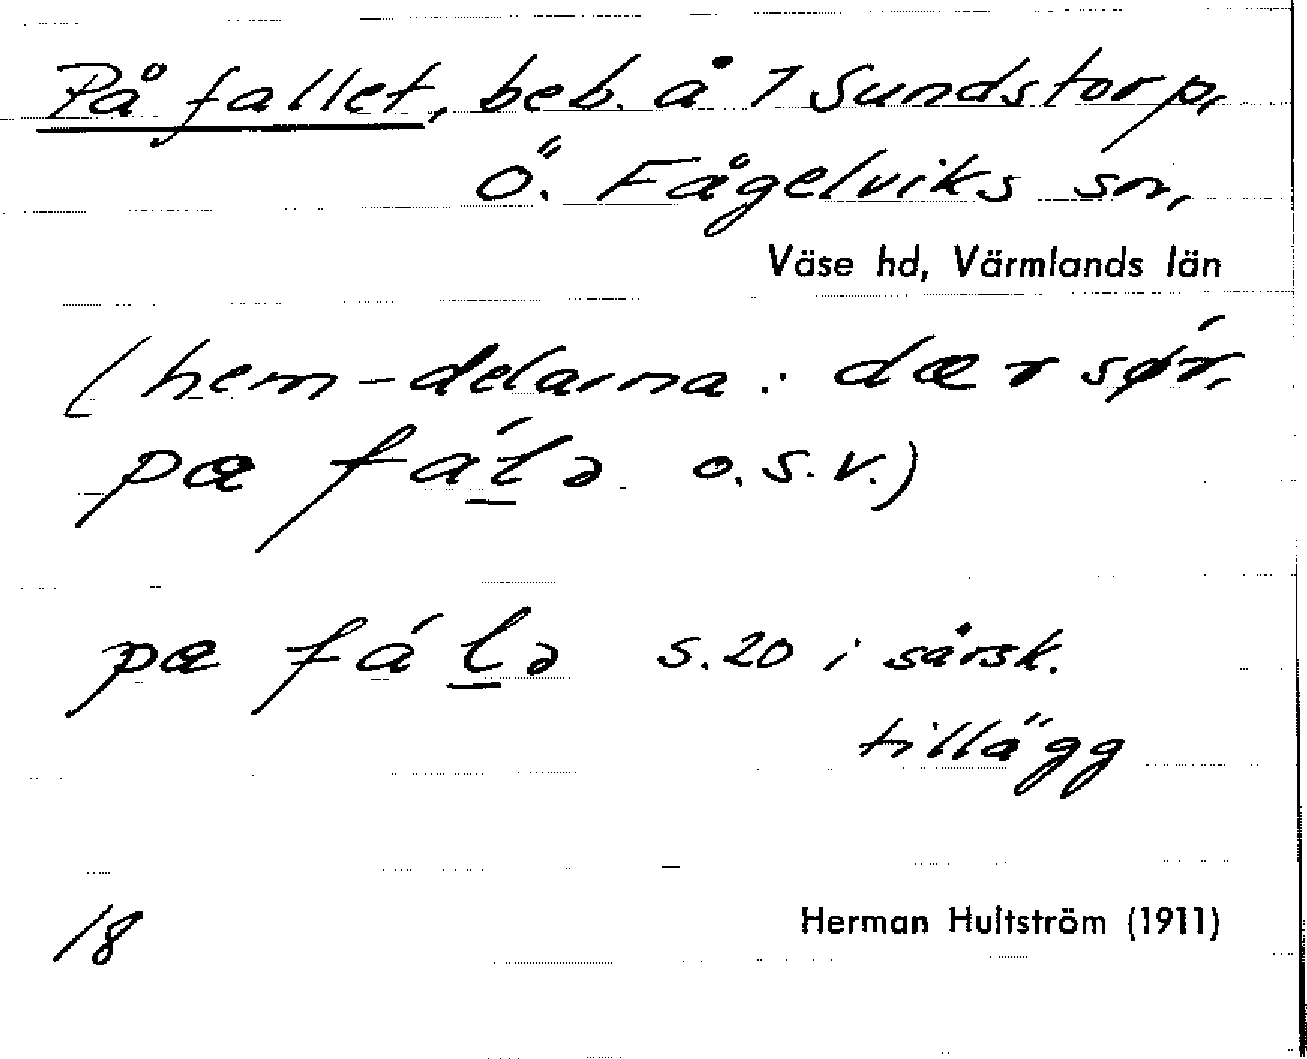 På fallet, beb. å 1 Sundstorp,
Ö. Fågelviks sn,
Väse hd, Värmlands län
(hem-delarna: dær sør,
pæ fál̠ə o.s.v.)
pæ fál̠ə s. 20 i särsk.
tillägg
18
Herman Hultström (1911)